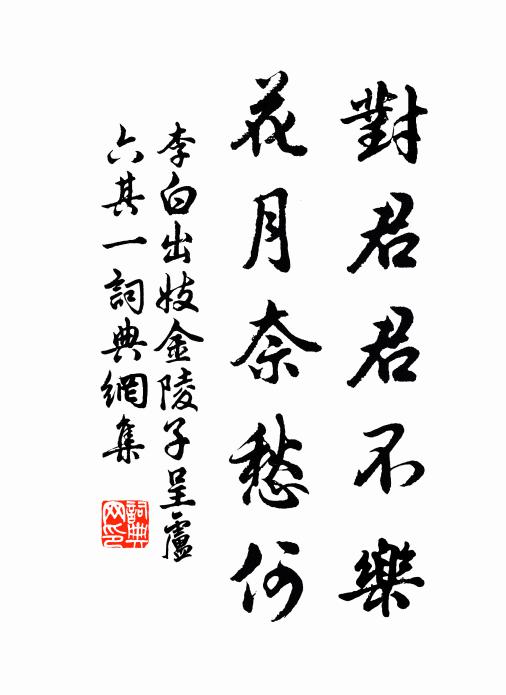 對君君不樂
花月奈愁何
李白出妓金陵子呈盧
六其一詞典網集
詞典
网印